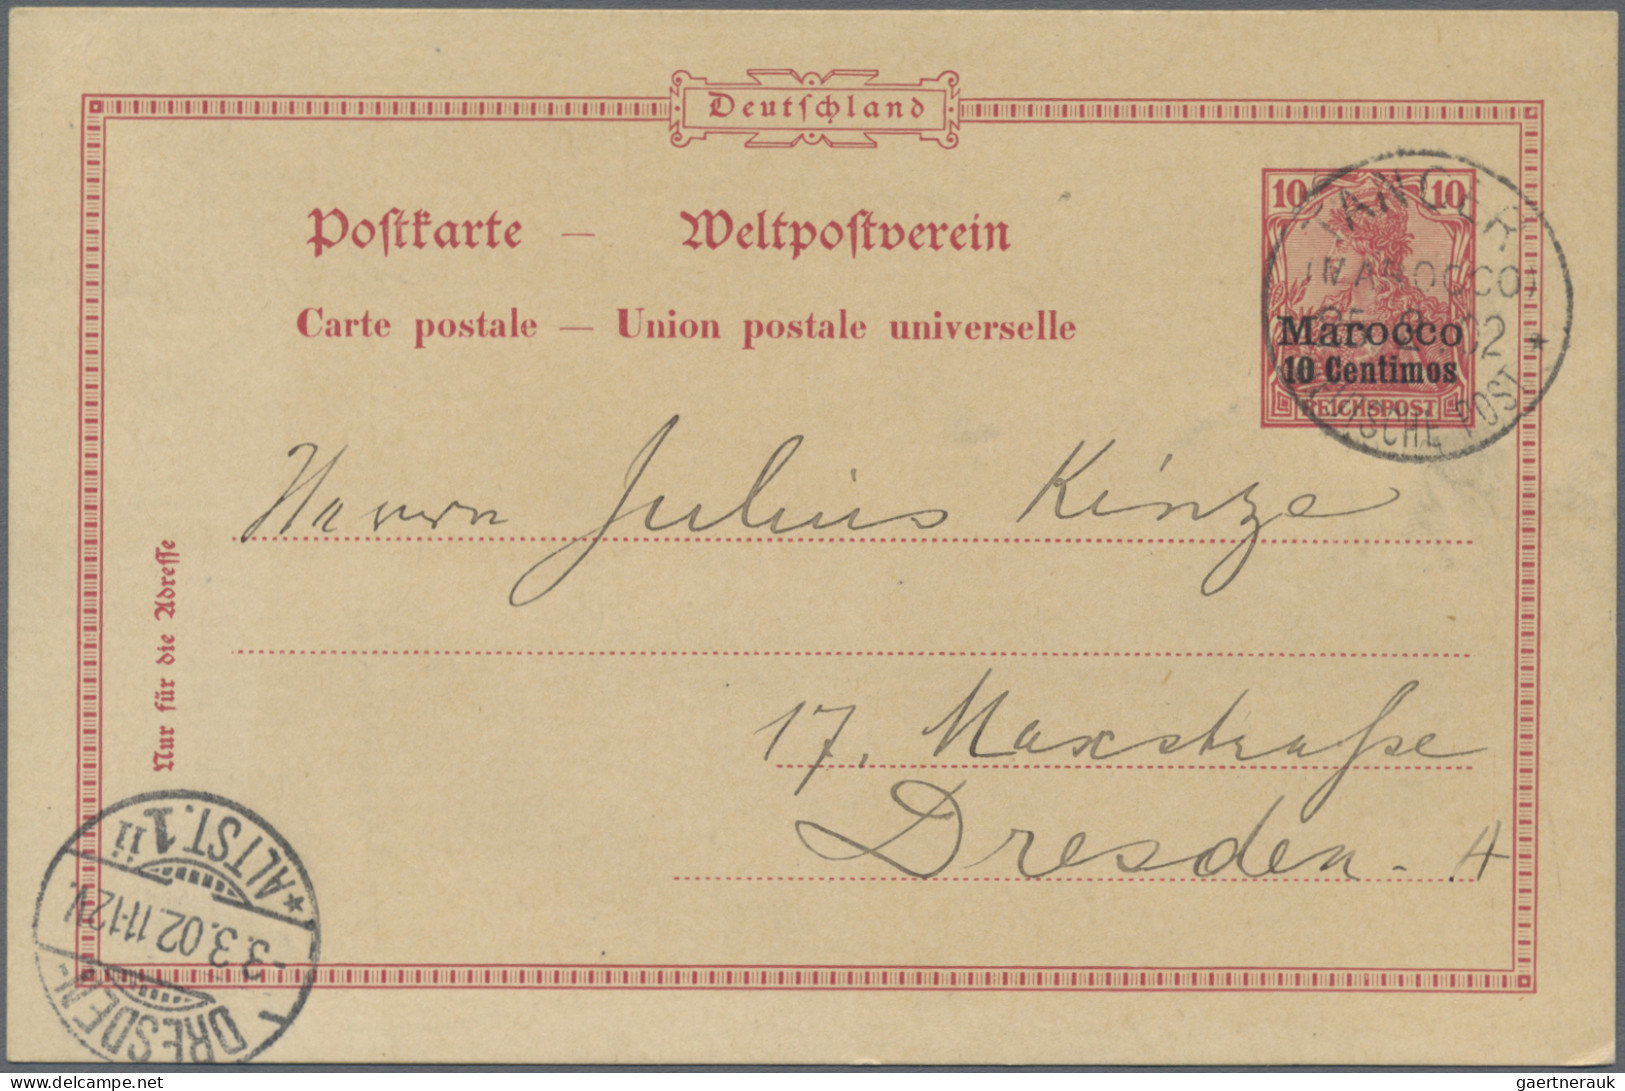 Deutschland
10 10
TANGER
(MAROCCO)
Marocco
10 Centimos
REICHSPOST
DEUTSCHE POST
Postkarte — Weltpostverein
Carte postale — Union postale universelle
Herrn Julius Kinze
Nur für die Adresse
17, Maxstraße
Dresden - A
DRESDEN-
-3.3.02.11-12V.
*ALTST.1
delcampe.net
gaertnerauk